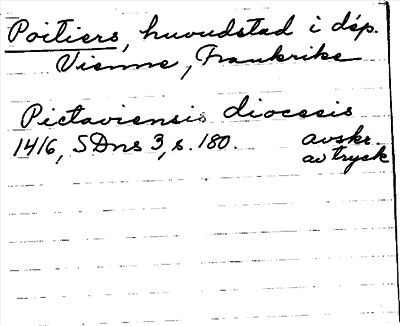 Poitiers, huvudstad i dép.
Vienne, Frankrike
Pictaviensis diocesis
1416, SDns 3, s. 180. avskr.
av tryck